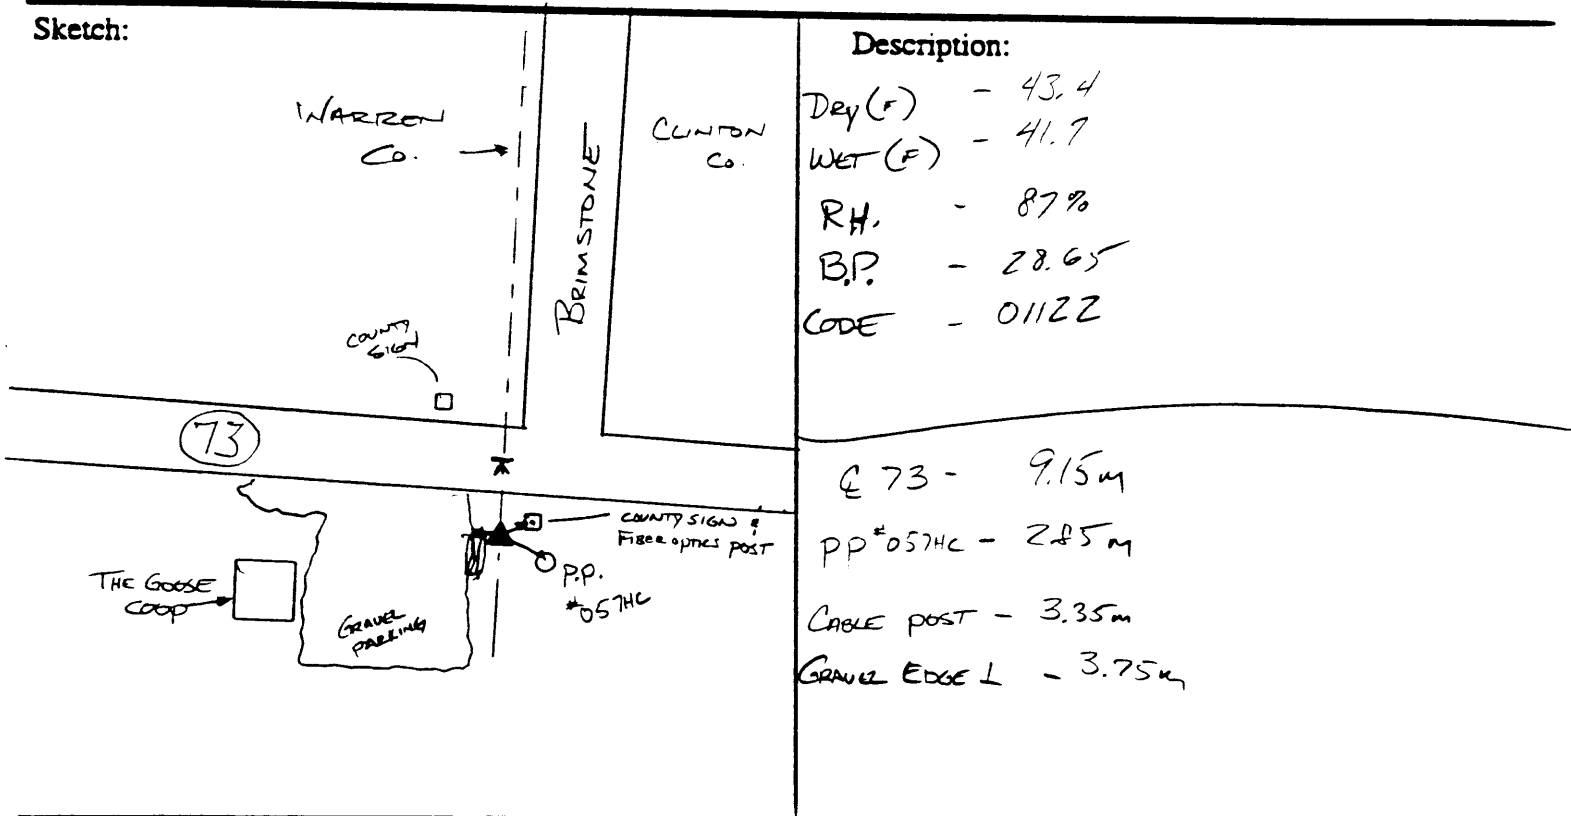 Sketch:
WARREN
Co.
BRIMSTONE
CLINTON
Co.
COUNTY
SIGN
73
COUNTY SIGN &
FIBER OPTICS POST
P.P.
#057HC
THE GOOSE
COOP
GRAVEL
PARKING
Description:
DRY (F) - 43.4
WET (F) - 41.7
RH. - 87%
B.P. - 28.65
CODE - 01122
℄ 73 - 9.15m
PP #057HC - 2.85m
CABLE POST - 3.35m
GRAVEL EDGE ⊥ - 3.75m